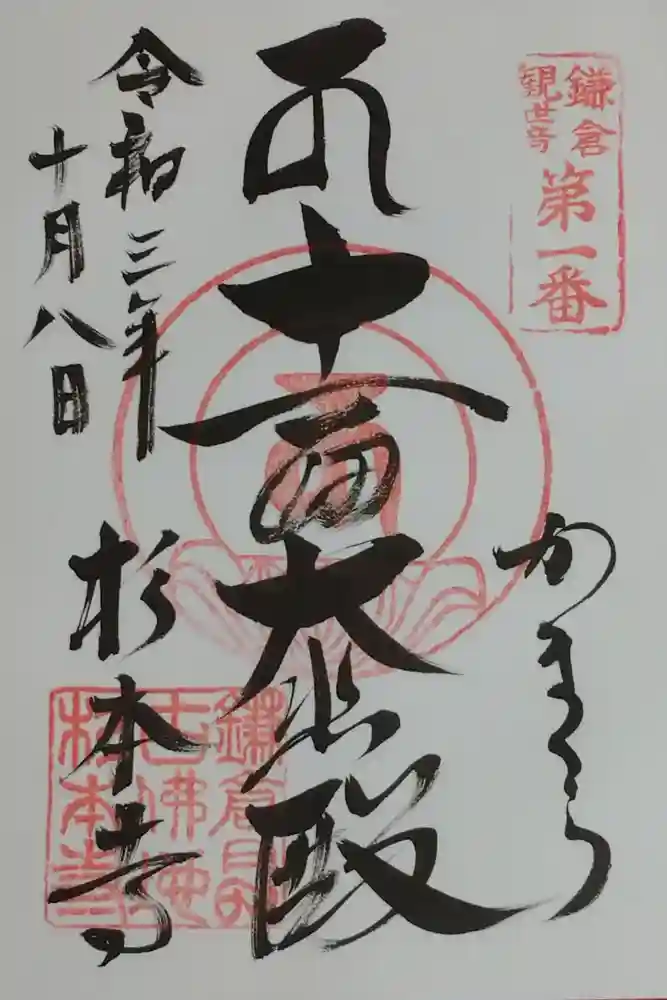 鎌倉
観世音
第一番
かまくら
十一面大悲殿
令和三年
十月八日
杉本寺
鎌倉最
古佛地
杉本寺